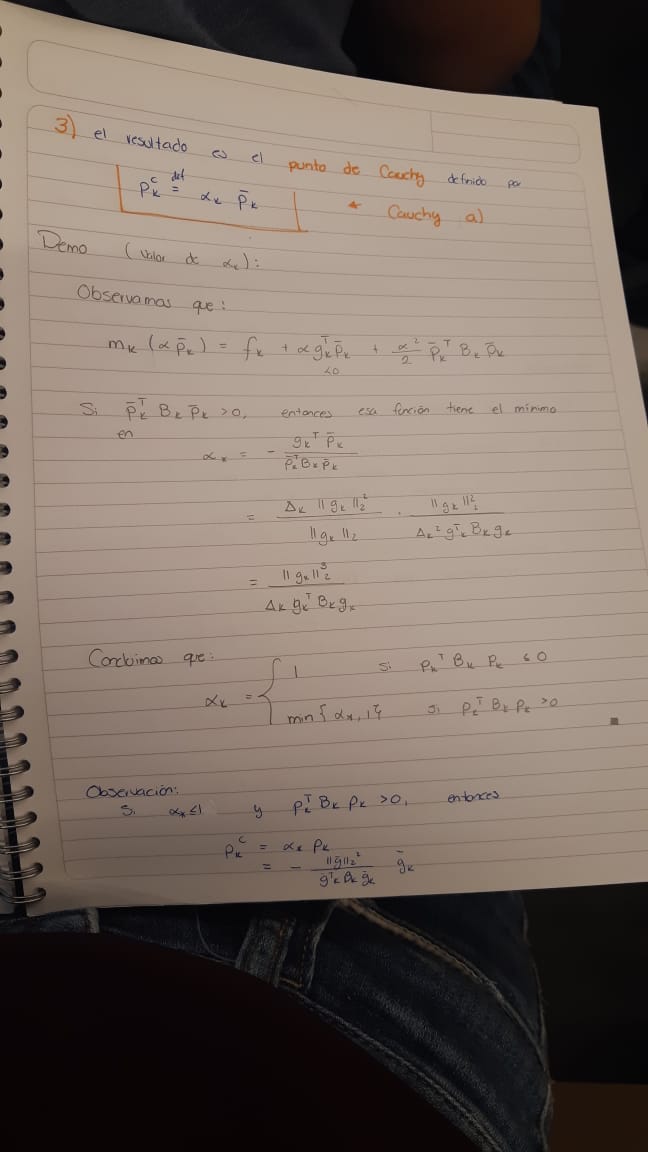 3) el resultado es el punto de Cauchy definido por
p_k^c \stackrel{def}{=} α_k \bar{p}_k * Cauchy a)
Demo (Valor de α_k):
Observamos que:
m_k(α \bar{p}_k) = f_k + α g_k^T \bar{p}_k + \frac{α^2}{2} \bar{p}_k^T B_k \bar{p}_k
<0
Si \bar{p}_k^T B_k \bar{p}_k >0, entonces esa función tiene el mínimo
en
α_* = - \frac{g_k^T \bar{p}_k}{\bar{p}_k^T B_k \bar{p}_k}
= \frac{Δ_k ||g_k||_2^2}{||g_k||_2} · \frac{||g_k||_2^2}{Δ_k^2 g_k^T B_k g_k}
= \frac{||g_k||_2^3}{Δ_k g_k^T B_k g_k}
Concluimos que:
α_k = { 1 si p_k^T B_k p_k ≤ 0
min{α_*, 1} si p_k^T B_k p_k >0
Observación:
Si α_* ≤ 1 y p_k^T B_k p_k >0, entonces
p_k^c = α_* p_k
= - \frac{||g||_2^2}{g_k^T B_k g_k} g_k